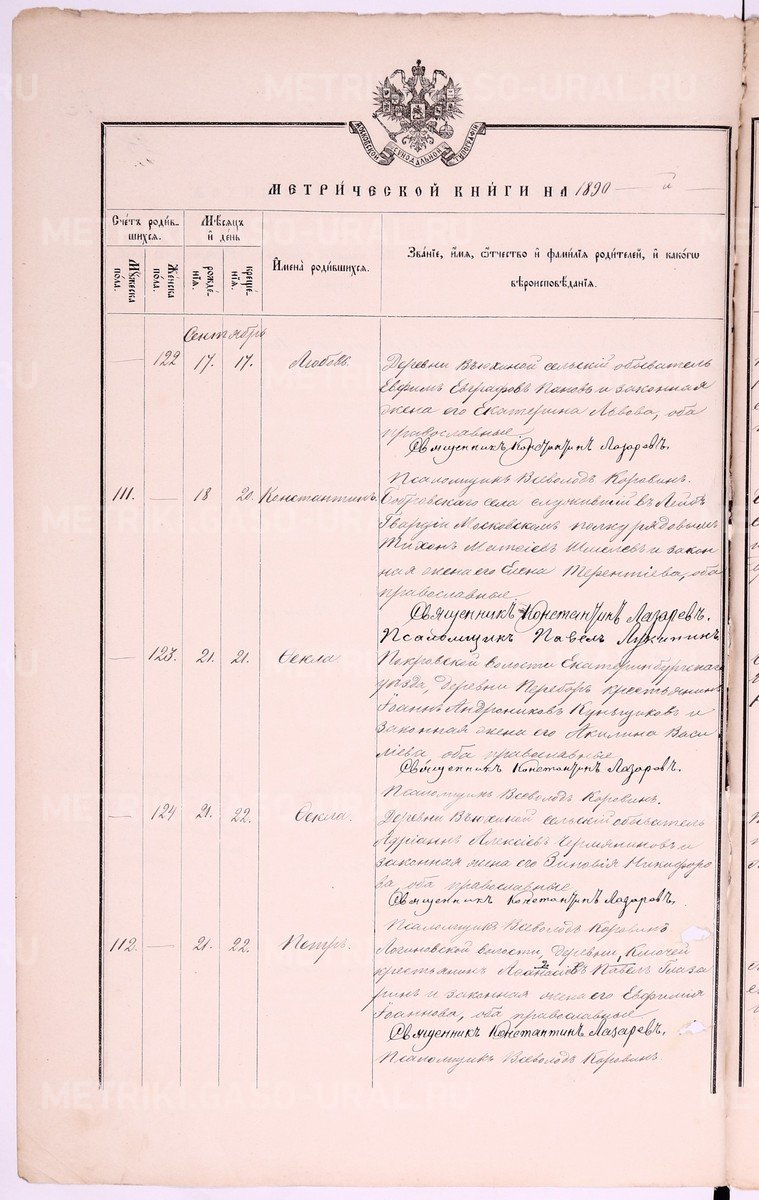 METRIKI.GASO-URAL.RU
МОСКОВСКОЙ СѴНОДАЛЬНОЙ ТИПОГРАФІИ
МЕТРИ́ЧЕСКОЙ КНИ́ГИ НА 1890 й
Сче́тъ роди́в-
шихся.
Мѣ́сяцъ
и҆ де́нь
И҆мена̀ роди́вшихся.
Зва́нїе, и҆́мя, ѻ҆́тчество и҆ фами́лїѧ роди́телей, и҆ како́гѡ
вѣроисповѣ́данїѧ.
Мꙋ́жеска по́ла.
Же́нска по́ла.
рожде́нїѧ.
креще́нїѧ.
Сентябрь
— 122 17. 17. Любовь. Деревни Вьюхиной сельскій обыватель
Евфимъ Евграфовъ Пановъ и законная
жена его Екатерина Львова, оба
православные.
Священникъ Константинъ Лазаревъ.
Псаломщикъ Всеволодъ Коровинъ.
111. — 18 20. Константинъ. села служившій въ Лейбъ
Гвардіи Московскомъ полку рядовымъ
Тихонъ Матѳіевъ Шмелевъ и закон
ная жена его Елена Терентіева, оба
православные.
Священникъ Константинъ Лазаревъ.
Псаломщикъ Павелъ
— 123. 21. 21. Ѳекла. Покровской волости Екатеринбургскаго
уѣзда, деревни Переборъ крестьянинъ
Іоаннъ Андрониковъ Кунгщиковъ и
законная жена его Акилина Васи
лієва, оба православные
Священникъ Константинъ Лазаревъ.
Псаломщикъ Всеволодъ Коровинъ.
— 124 21. 22. Ѳекла. Деревни Вьюхиной сельскій обыватель
Адріанъ Алексіевъ Чермяниновъ и
законная жена его Зиновія Никифоро
ва, оба православные
Священникъ Константинъ Лазаревъ.
Псаломщикъ Всеволодъ Коровинъ
112. — 21. 22. Петръ. Логиновской волости, деревни, Ключей
крестьянинъ Аѳанасіевъ Павелъ Глаза
ринъ и законная жена его Евфимія
Іоаннова, оба православные
Священникъ Константинъ Лазаревъ.
Псаломщикъ Всеволодъ Коровинъ.
METRIKI.GASO-URAL.RU